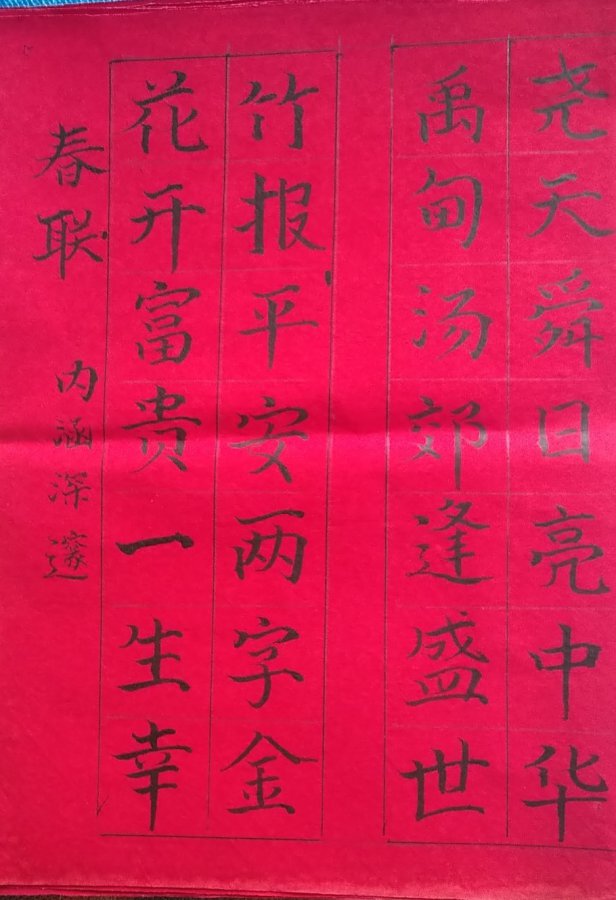 尧天舜日亮中华
禹甸汤郊逢盛世
竹报平安两字金
花开富贵一生幸
春联 内涵深邃